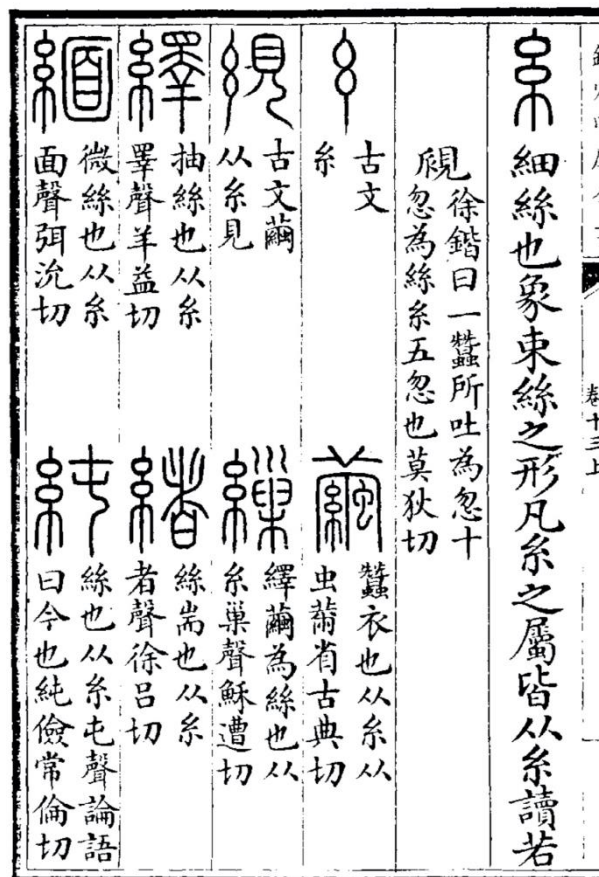 卷十三上
糸 細絲也象束絲之形凡糸之屬皆从糸讀若
覛 徐鍇曰一蠶所吐為忽十
忽為絲糸五忽也莫狄切
古文
糸
繭 蠶衣也从糸从
虫黹省古典切
絸 古文繭
从糸見
繅 繹繭為絲也从
糸巢聲穌遭切
繹 抽絲也从糸
睪聲羊益切
緒 絲耑也从糸
者聲徐呂切
緬 微絲也从糸
面聲弭沇切
純 絲也从糸屯聲論語
曰今也純儉常倫切